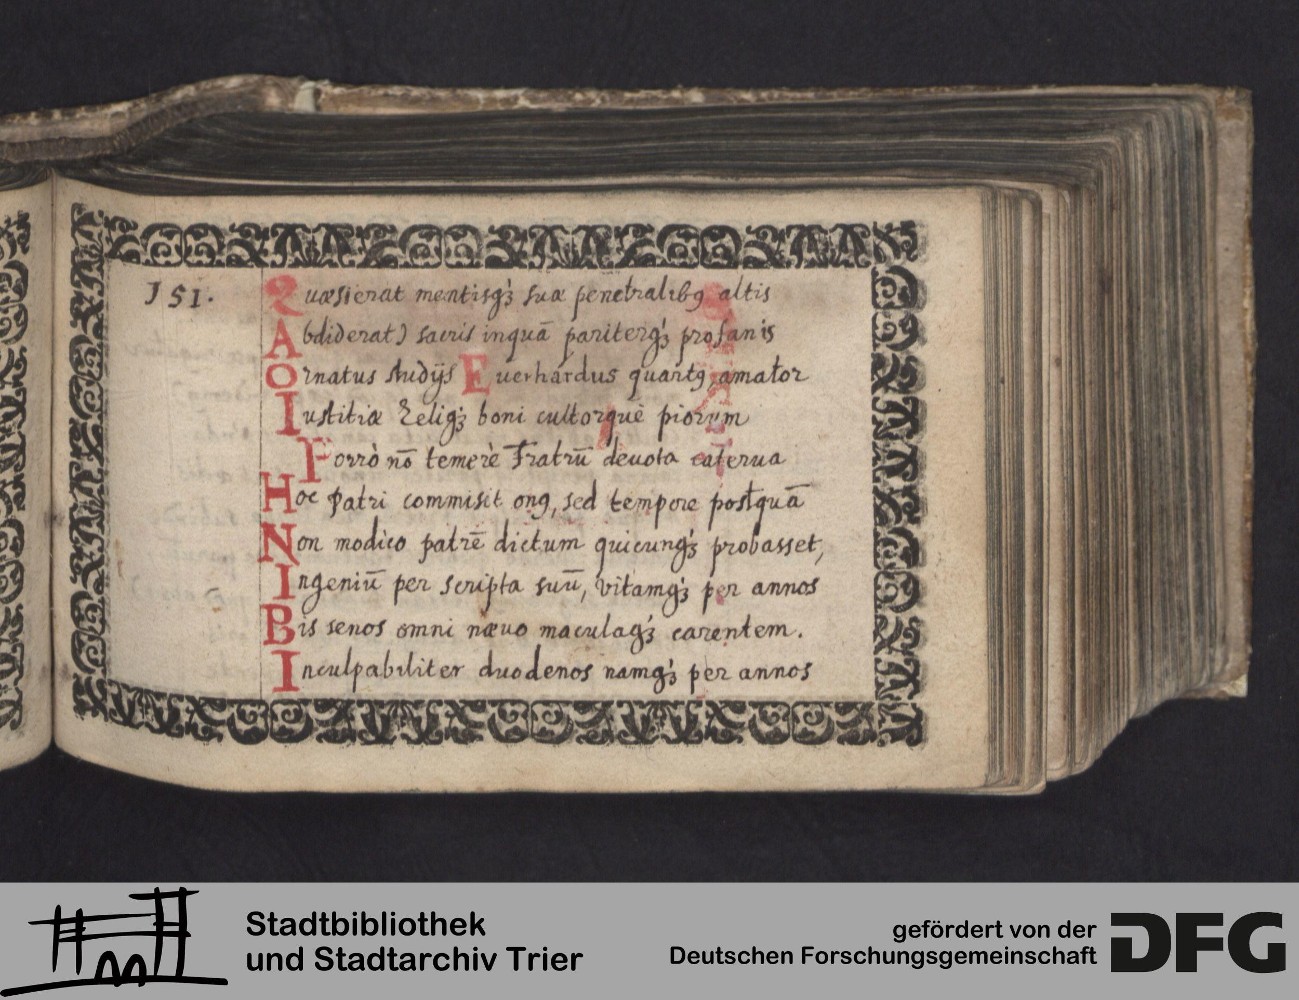 151.
Quæsierat mentisqꝫ suæ penetralibꝰ altis
Abdiderat) sacris inquā pariterqꝫ profanis
Ornatus studijs Euerhardus quartꝰ, amator
Iustitiæ Religꝫ boni cultorquè piorum
Porrò nō temerè Fratrū deuota caterua
Hoc Patri commisit onꝰ, sed tempore postquā
Non modico patrē dictum quicunqꝫ probasset,
Ingeniū per scripta suū, vitamqꝫ per annos
Bis senos omni næuo maculaqꝫ carentem.
Inculpabiliter duodenos namqꝫ per annos
Stadtbibliothek
und Stadtarchiv Trier
gefördert von der
Deutschen Forschungsgemeinschaft
DFG